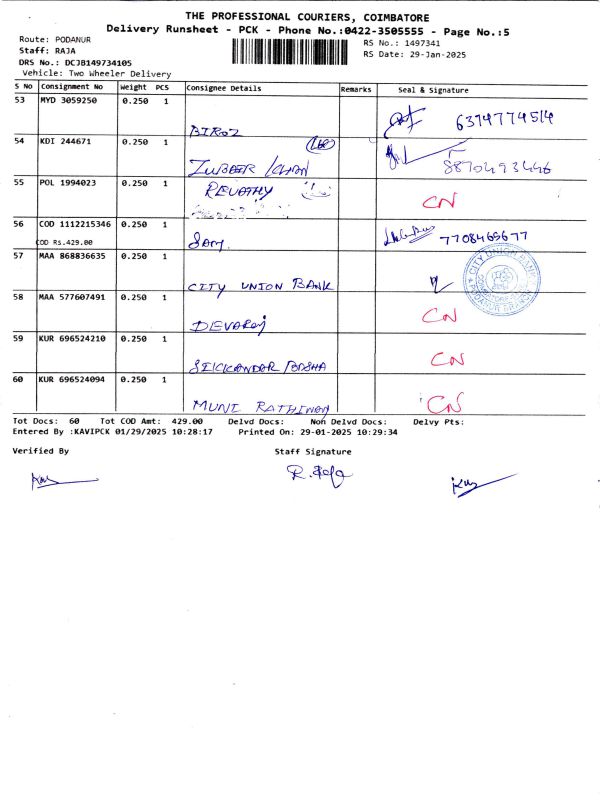 THE PROFESSIONAL COURIERS, COIMBATORE
Delivery Runsheet - PCK - Phone No.:0422-3505555 - Page No.:5
Route: PODANUR
Staff: RAJA
DRS No.: DCJB149734105
Vehicle: Two Wheeler Delivery
RS No.: 1497341
RS Date: 29-Jan-2025
S No Consignment No Weight PCS Consignee Details Remarks Seal & Signature
53 MYD 3059250 0.250 1 BIROZ 6374774514
54 KDI 244671 0.250 1 ZUBEER KHAN 8870493446
55 POL 1994023 0.250 1 REVATHY CN
56 COD 1112215346 0.250 1 Sam 7708465677
COD RS.429.00
57 MAA 868836635 0.250 1 CITY UNION BANK
CITY UNION BANK
PODANUR BRANCH
58 MAA 577607491 0.250 1 DEVARAJ CN
59 KUR 696524210 0.250 1 SICKANDAR BASHA CN
60 KUR 696524094 0.250 1 MUNI RATHINAM CN
Tot Docs: 60 Tot COD Amt: 429.00 Delvd Docs: Non Delvd Docs: Delvy Pts:
Entered By :KAVIPCK 01/29/2025 10:28:17 Printed On: 29-01-2025 10:29:34
Verified By Staff Signature
R. Raja